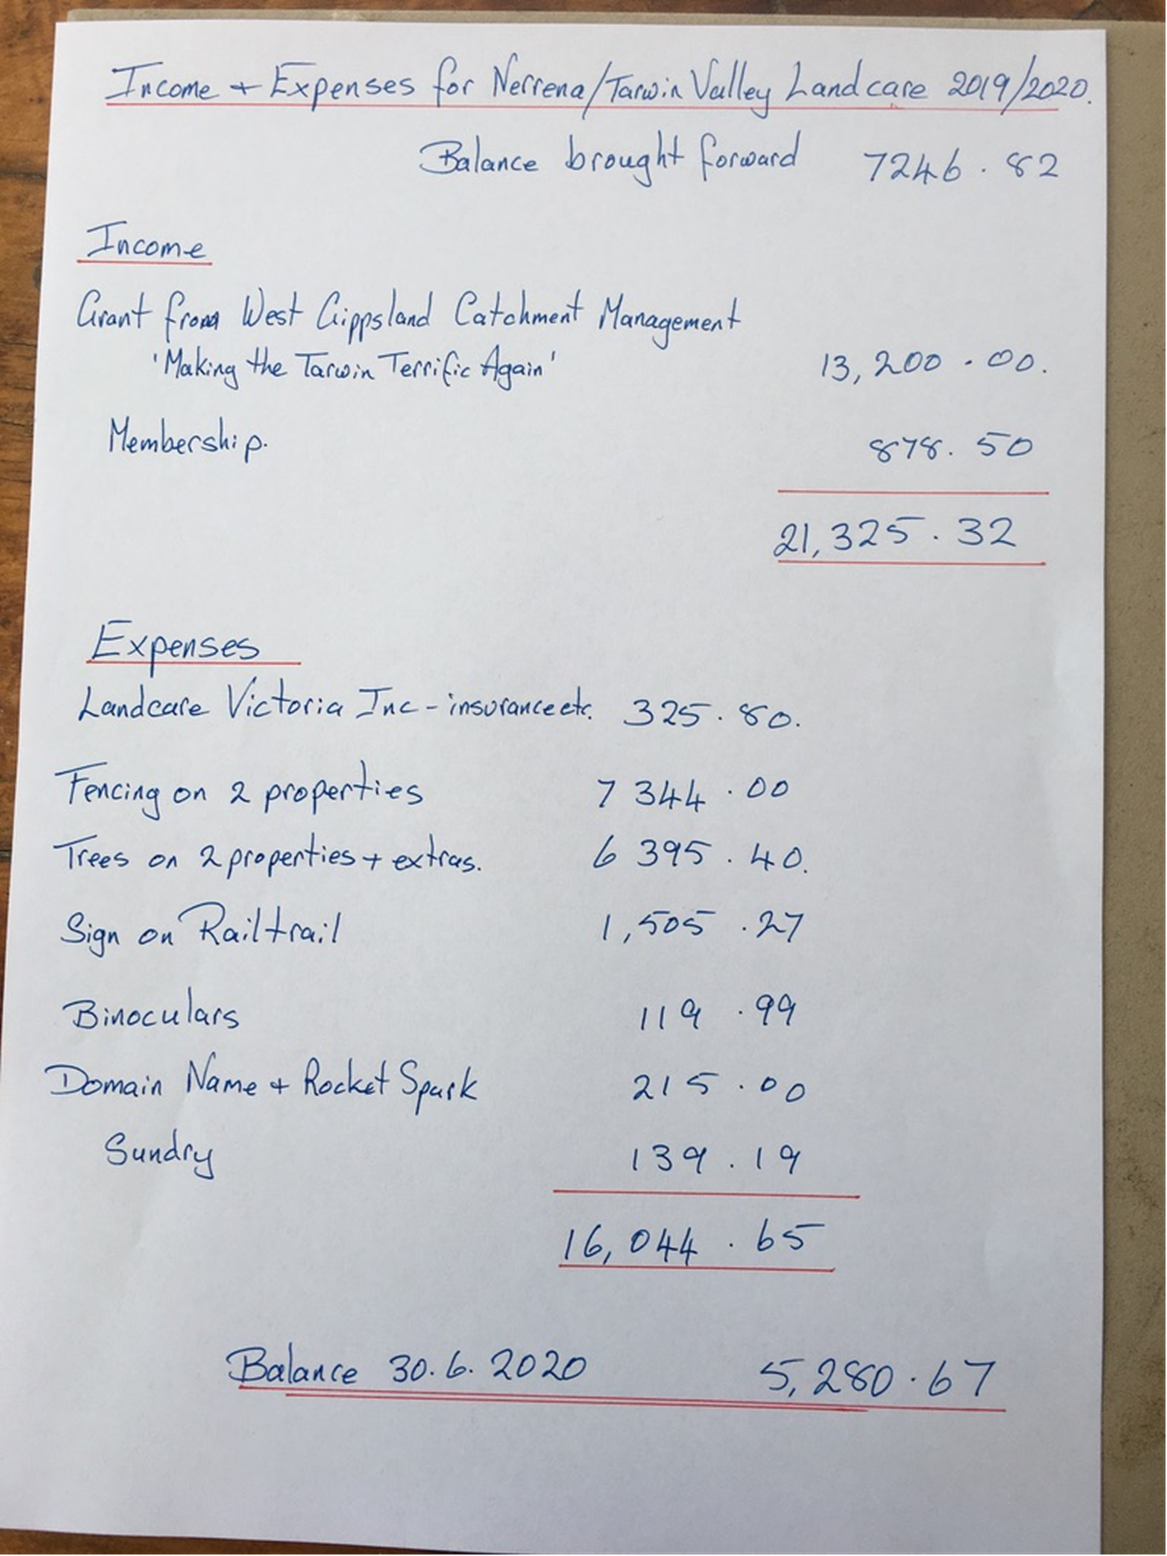 Income + Expenses for Nerrena/Tarwin Valley Landcare 2019/2020.
Balance brought forward 7246.82
Income
Grant from West Gippsland Catchment Management
'Making the Tarwin Terrific Again' 13,200.00.
Membership. 878.50
21,325.32
Expenses
Landcare Victoria Inc - insurance etc. 325.80.
Fencing on 2 properties 7344.00
Trees on 2 properties + extras. 6395.40.
Sign on Railtrail 1,505.27
Binoculars 119.99
Domain Name + Rocket Spark 215.00
Sundry 139.19
16,044.65
Balance 30.6.2020 5,280.67